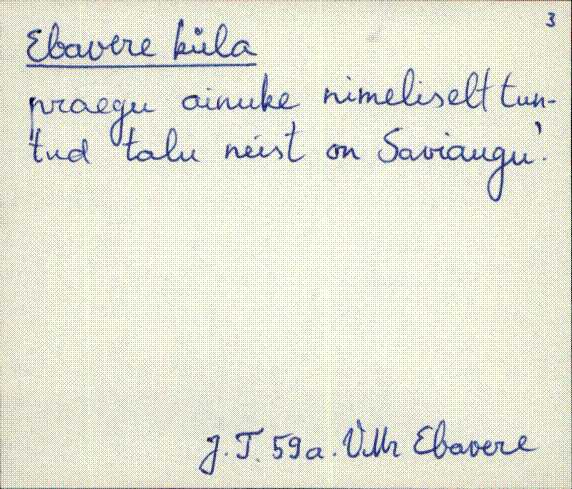 3
Ebavere küla
praegu ainuke nimeliselt tun-
tud talu neist on Saviaugu'.
J. T. 59a. V.Mr Ebavere